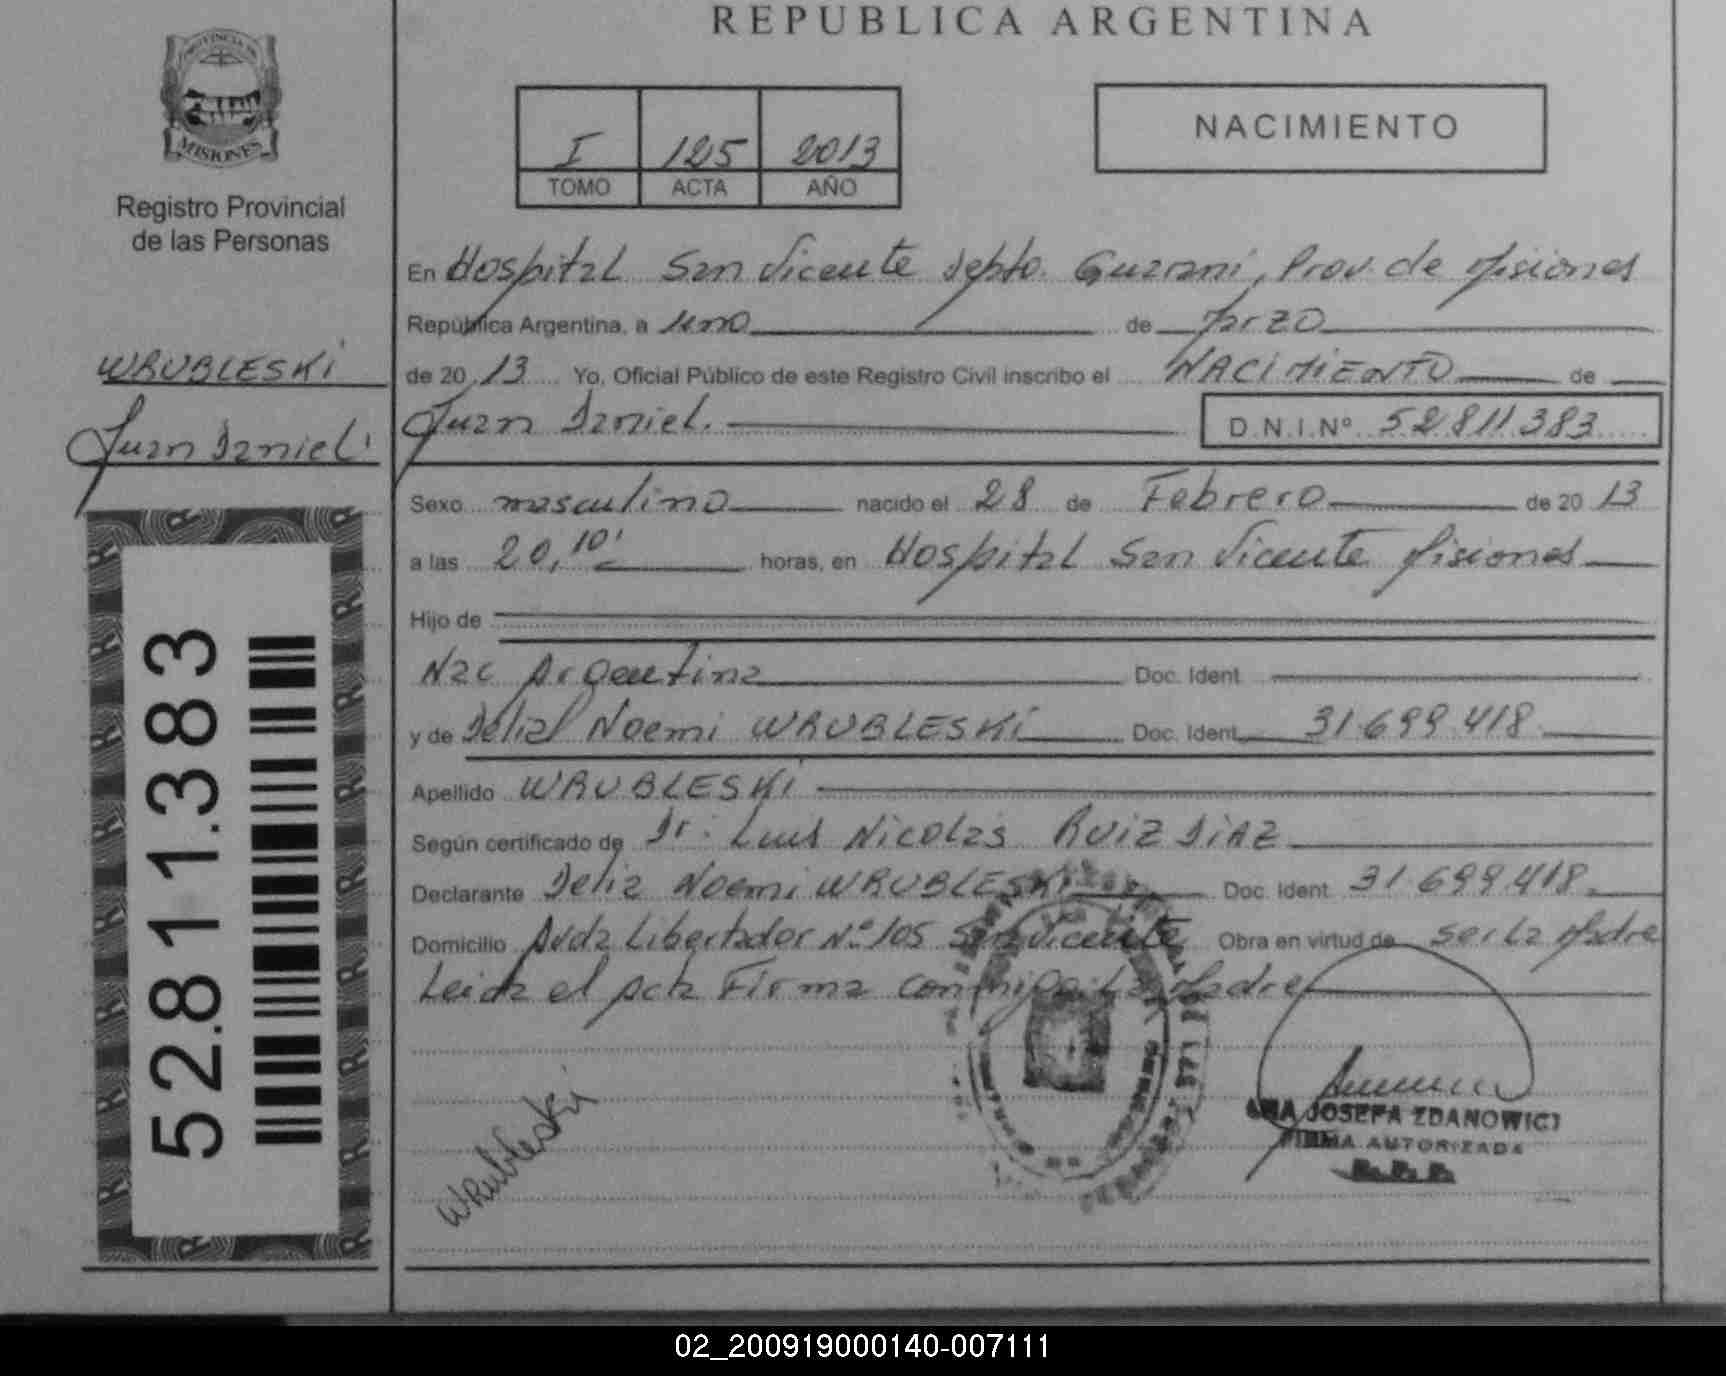 REPUBLICA ARGENTINA
PROVINCIA DE
MISIONES
Registro Provincial
de las Personas
I 125 2013
TOMO ACTA AÑO
NACIMIENTO
WRUBLESKI
Juan Daniel
52.811.383
En Hospital San Vicente Depto. Guarani, Prov. de Misiones
República Argentina, a uno de Marzo
de 20 13 Yo, Oficial Público de este Registro Civil inscribo el NACIMIENTO de
Juan Daniel. D.N.I.Nº 52.811.383
Sexo masculino nacido el 28 de Febrero de 20 13
a las 20,10' horas, en Hospital San Vicente Misiones
Hijo de
Nac Argentina Doc. Ident.
y de Delia Noemi WRUBLESKI Doc. Ident. 31.699.418
Apellido WRUBLESKI
Según certificado de Dr. Luis Nicolas RUIZ DIAZ
Declarante Delia Noemi WRUBLESKI Doc. Ident. 31.699.418
Domicilio Avda Libertador Nº 105 San Vicente Obra en virtud de ser la Madre
Leida el acta Firma conmigo La Madre
Wrubleski
JOSEFA ZDANOWICZ
FIRMA AUTORIZADA
R. P. P.
02_200919000140-007111